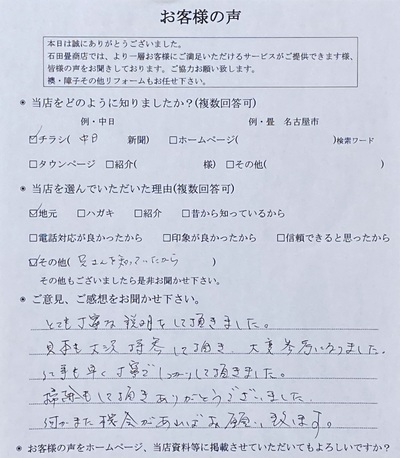 お客様の声
本日は誠にありがとうございました。
石田畳商店では、より一層お客様にご満足いただけるサービスがご提供できます様、
皆様の声をお聞きしております。ご協力お願い致します。
襖・障子その他リフォームもお任せ下さい。
＊ 当店をどのように知りましたか？(複数回答可)
例・中日 例・畳　名古屋市
☑チラシ( 中日 新聞) □ホームページ( )検索ワード
□タウンページ □紹介( 様) □その他( )
＊ 当店を選んでいただいた理由(複数回答可)
☑地元 □ハガキ □紹介 □昔から知っているから
□電話対応が良かったから □印象が良かったから □信頼できると思ったから
☑その他( 兄さんを知っていたから )
その他もございましたら是非お聞かせ下さい。
＊ ご意見、ご感想をお聞かせ下さい。
とても丁寧な説明をして頂きました。
見本も沢山持参して頂き 大変参考になりました。
仕事も早く丁寧でしっかりして頂きました。
掃除もして頂きありがとうございました。
何かまた機会があればお願い致します。
＊ お客様の声をホームページ、当店資料等に掲載させていただいてもよろしいですか？